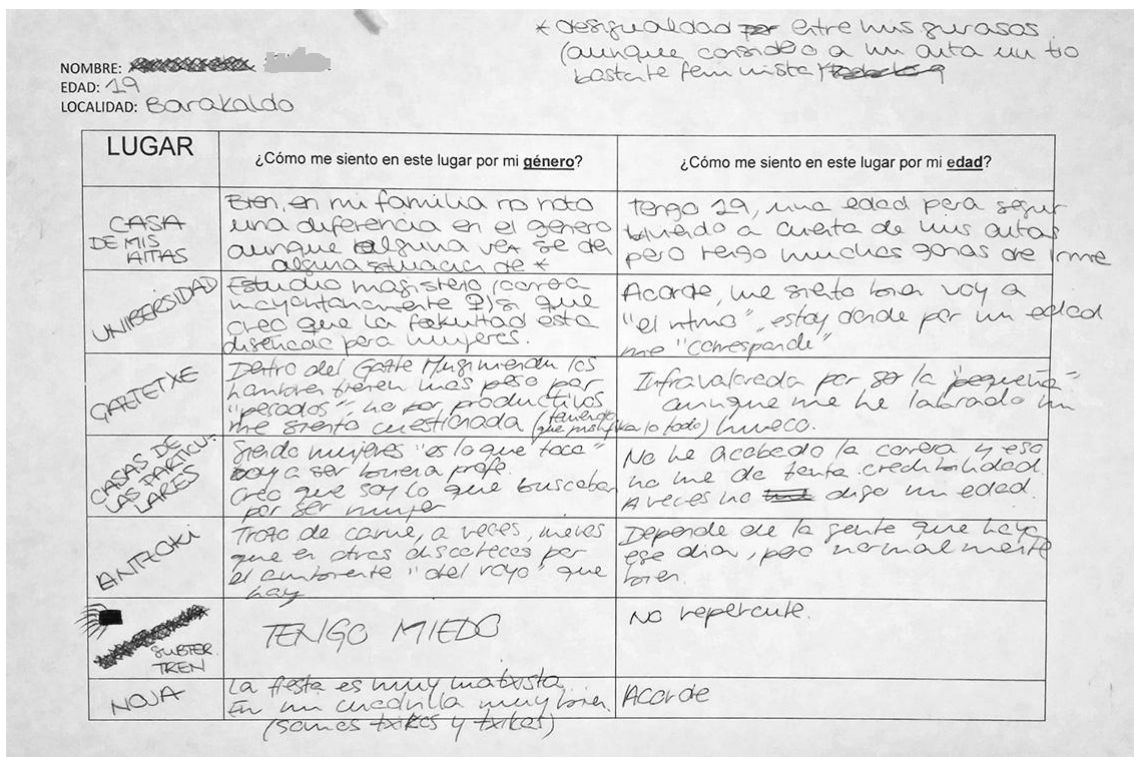 * desigualdad entre mis gurasos
(aunque considero a mi aita un tio
bastante feminista)
NOMBRE:
EDAD: 19
LOCALIDAD: Barakaldo
LUGAR
¿Cómo me siento en este lugar por mi género?
¿Cómo me siento en este lugar por mi edad?
CASA
DE MIS
AITAS
Bien, en mi familia no noto
una diferencia en el genero
aunque alguna vez se da
alguna situación de *
Tengo 19, una edad para seguir
viviendo a cuenta de mis aitas
pero tengo muchas ganas de irme
UNIBERSIDAD
Estudio magisterio (carrera
mayoritariamente ♀) si que
creo que la fakultad esta
diseñada para mujeres.
Acorde, me siento bien voy a
"el ritmo", estoy donde por mi edad
me "corresponde"
GAZTETXE
Dentro del Gazte Mugimendu los
hombres tienen más peso por
"pesados", no por productivos
me siento cuestionada (teniendo
que justificarlo todo)
Infravalorada por ser la "pequeña"
aunque me he labrado un
hueco.
CASAS DE
LAS PARTICU-
LARES
Siendo mujeres "es lo que toca"
voy a ser buena profe.
Creo que soy lo que buscaban
por ser mujer
No he acabado la carrera y eso
no me da tanta credibilidad.
A veces no digo mi edad.
ANTZOKI
Trozo de carne, a veces, menos
que en otras discotecas por
el ambiente "del rayo" que
hay
Depende de la gente que haya
ese dia, pero normalmente
bien.
SUBTER.
TREN
TENGO MIEDO
No repercute.
NOJA
La fiesta es muy matxista
En mi cuadrilla muy bien.
(somos txikos y txikas)
Acorde